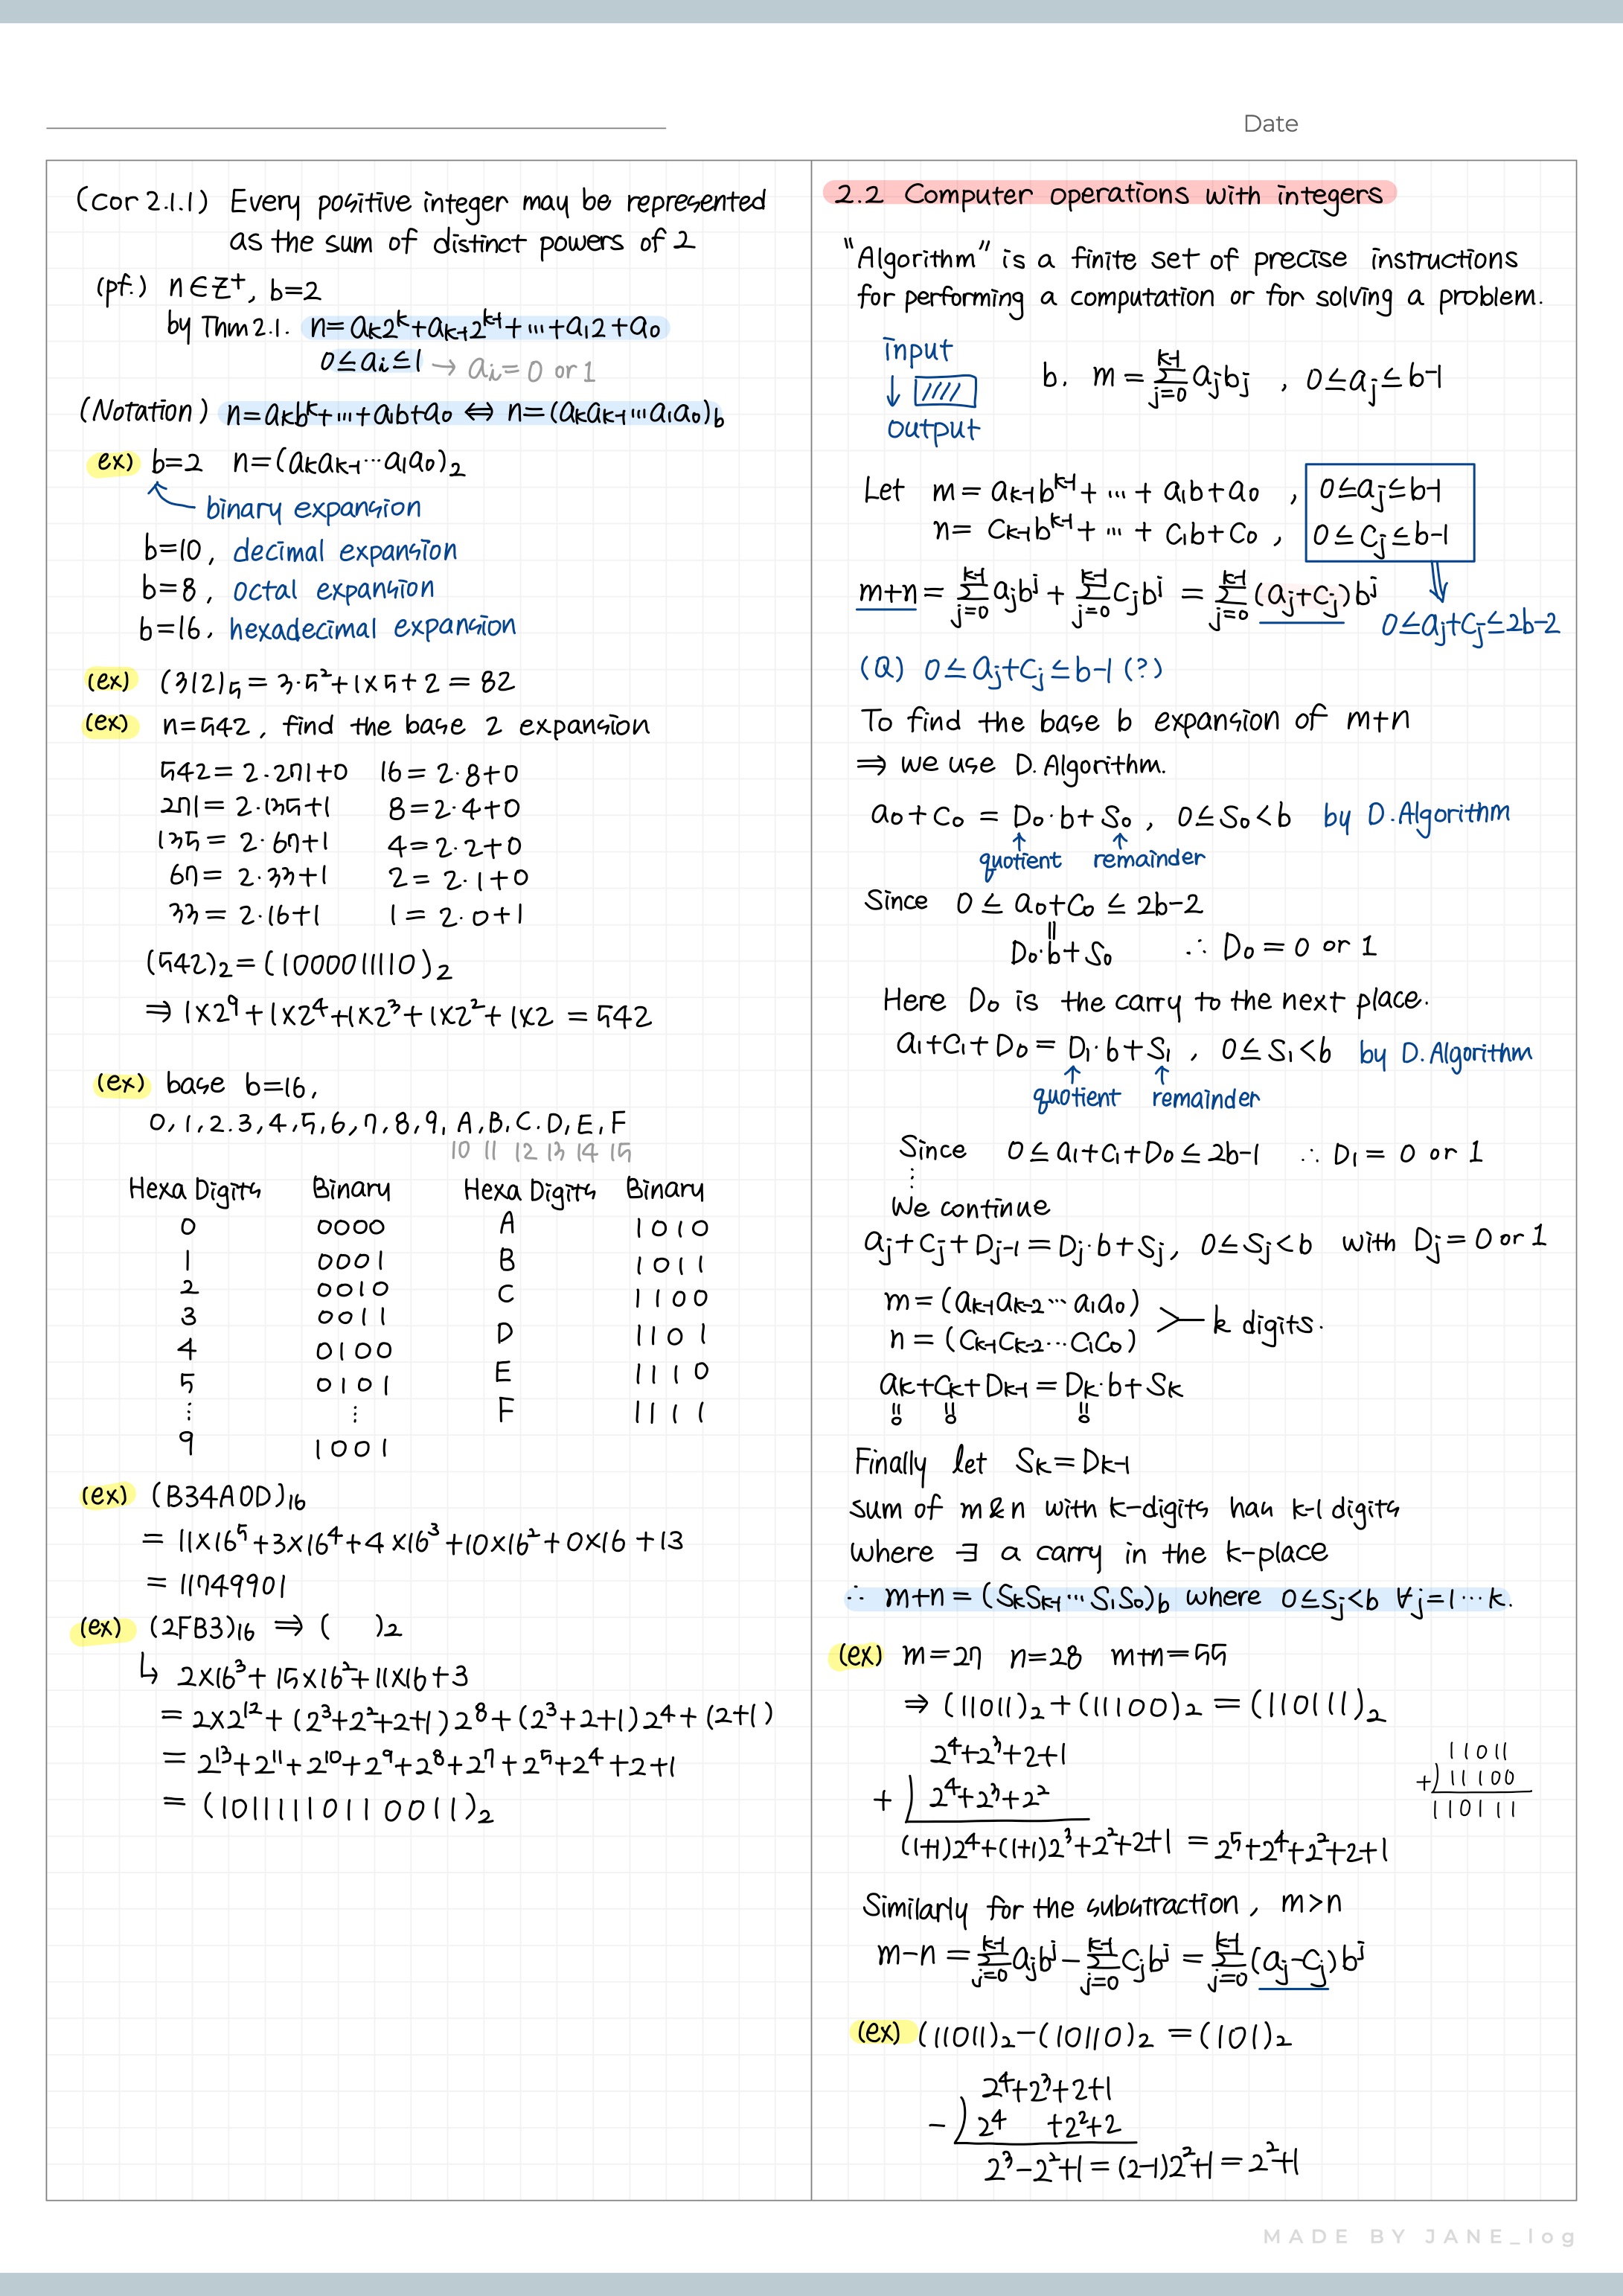 Date
(Cor 2.1.1) Every positive integer may be represented
as the sum of distinct powers of 2
(pf.) n∈Z⁺, b=2
by Thm 2.1. n=aₖ2ᵏ+aₖ₋₁2ᵏ⁻¹+⋯+a₁2+a₀
0≤aᵢ≤1 → aᵢ=0 or 1
(Notation) n=aₖbᵏ+⋯+a₁b+a₀ ⇔ n=(aₖaₖ₋₁⋯a₁a₀)_b
ex) b=2 n=(aₖaₖ₋₁⋯a₁a₀)₂
binary expansion
b=10, decimal expansion
b=8, octal expansion
b=16, hexadecimal expansion
(ex) (312)₅=3·5²+1×5+2=82
(ex) n=542, find the base 2 expansion
542=2·271+0 16=2·8+0
271=2·135+1 8=2·4+0
135=2·67+1 4=2·2+0
67=2·33+1 2=2·1+0
33=2·16+1 1=2·0+1
(542)₂=(1000011110)₂
⇒ 1×2⁹+1×2⁴+1×2³+1×2²+1×2=542
(ex) base b=16,
0,1,2.3,4,5,6,7,8,9, A,B,C.D,E,F
10 11 12 13 14 15
Hexa Digits Binary Hexa Digits Binary
0 0000 A 1010
1 0001 B 1011
2 0010 C 1100
3 0011 D 1101
4 0100 E 1110
5 0101 F 1111
⋮ ⋮
9 1001
(ex) (B34A0D)₁₆
= 11×16⁵+3×16⁴+4×16³+10×16²+0×16+13
= 11749901
(ex) (2FB3)₁₆ ⇒ ( )₂
↳ 2×16³+15×16²+11×16+3
= 2×2¹²+(2³+2²+2+1)2⁸+(2³+2+1)2⁴+(2+1)
= 2¹³+2¹¹+2¹⁰+2⁹+2⁸+2⁷+2⁵+2⁴+2+1
= (10111110110011)₂
2.2 Computer operations with integers
"Algorithm" is a finite set of precise instructions
for performing a computation or for solving a problem.
input
↓
output
b. m=∑_{j=0}^{k-1} aⱼbⱼ , 0≤aⱼ≤b-1
Let m=aₖ₋₁bᵏ⁻¹+⋯+a₁b+a₀ , 0≤aⱼ≤b-1
n=Cₖ₋₁bᵏ⁻¹+⋯+C₁b+C₀ , 0≤Cⱼ≤b-1
m+n=∑_{j=0}^{k-1} aⱼbʲ+∑_{j=0}^{k-1} Cⱼbʲ=∑_{j=0}^{k-1}(aⱼ+Cⱼ)bʲ
0≤aⱼ+Cⱼ≤2b-2
(Q) 0≤aⱼ+Cⱼ≤b-1(?)
To find the base b expansion of m+n
⇒ we use D.Algorithm.
a₀+C₀=D₀·b+S₀, 0≤S₀<b by D.Algorithm
↑ ↑
quotient remainder
Since 0≤a₀+C₀≤2b-2
||
D₀·b+S₀ ∴ D₀=0 or 1
Here D₀ is the carry to the next place.
a₁+C₁+D₀=D₁·b+S₁, 0≤S₁<b by D.Algorithm
↑ ↑
quotient remainder
Since 0≤a₁+C₁+D₀≤2b-1 ∴ D₁=0 or 1
⋮
We continue
aⱼ+Cⱼ+Dⱼ₋₁=Dⱼ·b+Sⱼ, 0≤Sⱼ<b with Dⱼ=0 or 1
m=(aₖ₋₁aₖ₋₂⋯a₁a₀)
n=(Cₖ₋₁Cₖ₋₂⋯C₁C₀) > k digits.
aₖ+Cₖ+Dₖ₋₁=Dₖ·b+Sₖ
|| || ||
0 0 0
Finally let Sₖ=Dₖ₋₁
sum of m&n with k-digits has k-1 digits
where ∃ a carry in the k-place
∴ m+n=(SₖSₖ₋₁⋯S₁S₀)_b where 0≤Sⱼ<b ∀j=1⋯k.
(ex) m=27 n=28 m+n=55
⇒ (11011)₂+(11100)₂=(110111)₂
2⁴+2³+2+1
+ ) 2⁴+2³+2²
(1+1)2⁴+(1+1)2³+2²+2+1=2⁵+2⁴+2²+2+1
11011
+) 11100
110111
Similarly for the substraction, m>n
m-n=∑_{j=0}^{k-1} aⱼbʲ-∑_{j=0}^{k-1} Cⱼbʲ=∑_{j=0}^{k-1}(aⱼ-Cⱼ)bʲ
(ex) (11011)₂-(10110)₂=(101)₂
2⁴+2³+2+1
- ) 2⁴ +2²+2
2³-2²+1=(2-1)2²+1=2²+1
MADE BY JANE_log